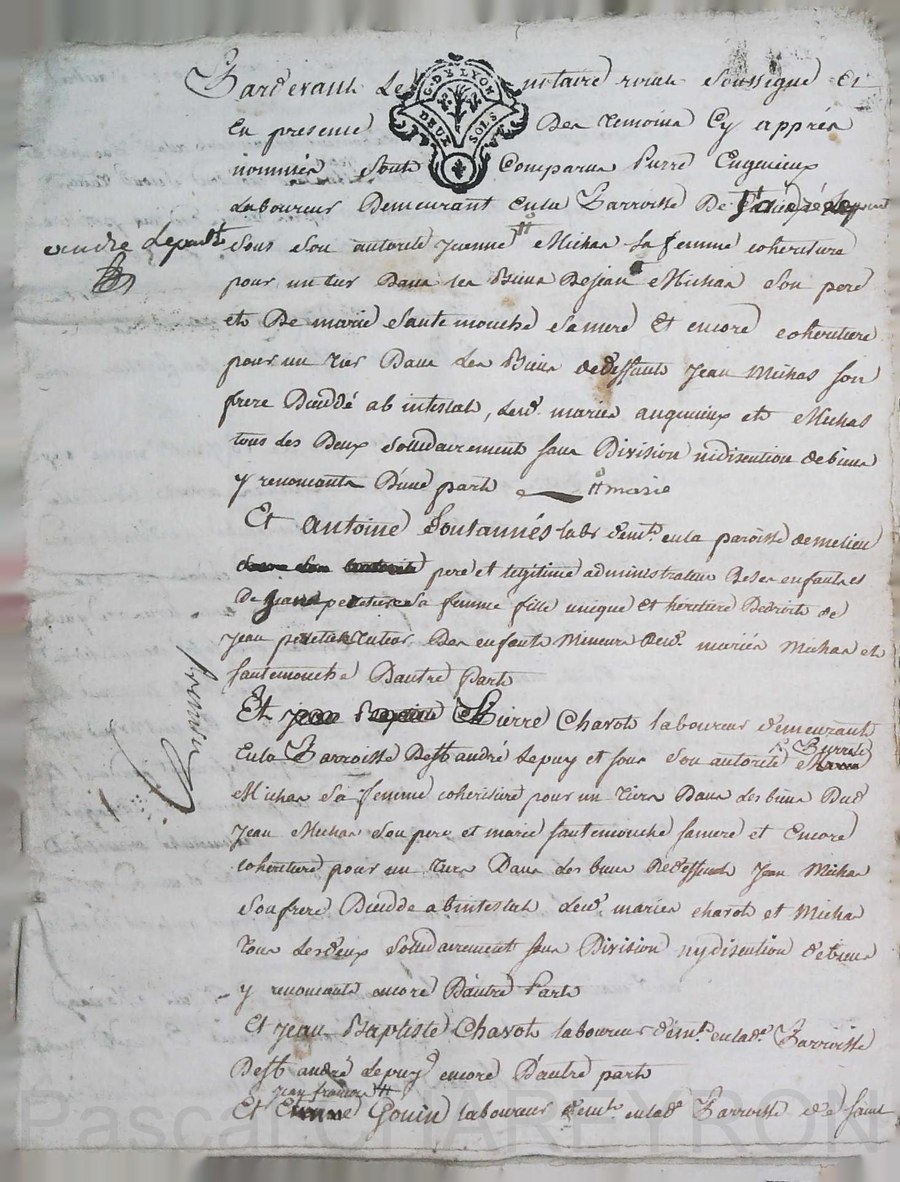 Pardevant Le notaire roial Soussigné Et
G. DE LYON
DEUX SOLS
En presence Des temoins Cy apprés
nommés Sont Comparus Pierre Engenieux
Laboureur Demeurant en la Parroisse De
andré Lepuits
Sous Son autorité Jeanne Michas Sa femme coheritiere
pour un tier Dans les Biens De jean Michas Son pere
et De marie Sautemouche Samere Et encore coheritiere
pour un tier Dans Les Biens dedeffunt Jean Michas Son
frere Decedé ab intestat, Lesd. mariés engenieux et Michas
tous les Deux Solidairement Sans Division nidiscution de biens
y renoncants D'une part
marie
Et antoine Soutannés labr demt. en la paroisse demelieu
pere et legitime administrateur De Ses enfants et
De Sa femme fille unique Et heritiere De droit de
Jean Des enfants Mineurs desd. mariés Michas et
Sautemouche Dautre Part
Et Pierre Chavot laboureur demeurant
En la Parroisse De St andré Lepuy et Sous Son autorité Pierrete
Michas Sa femme coheritiere pour un tiers Dans Les biens Dud
Jean Michas Son pere et marie Sautemouche Samere et Encore
Coheritiere pour un tiers Dans Les biens De deffunt Jean Michas
Son frere Decedde abintestat Lesd. mariés chavot et Michas
Tous Les deux Solidairement Sans Division ny discution de biens
y renoncants encore Dautre Part
Et Jean Baptiste Chavot laboureur demt. en lade. Parroisse
De St andré Lepuy encore Dautre part
jean francois
Et Gouin laboureur demt. en lade Parroisse de Saint
Pascal CHAREYRON